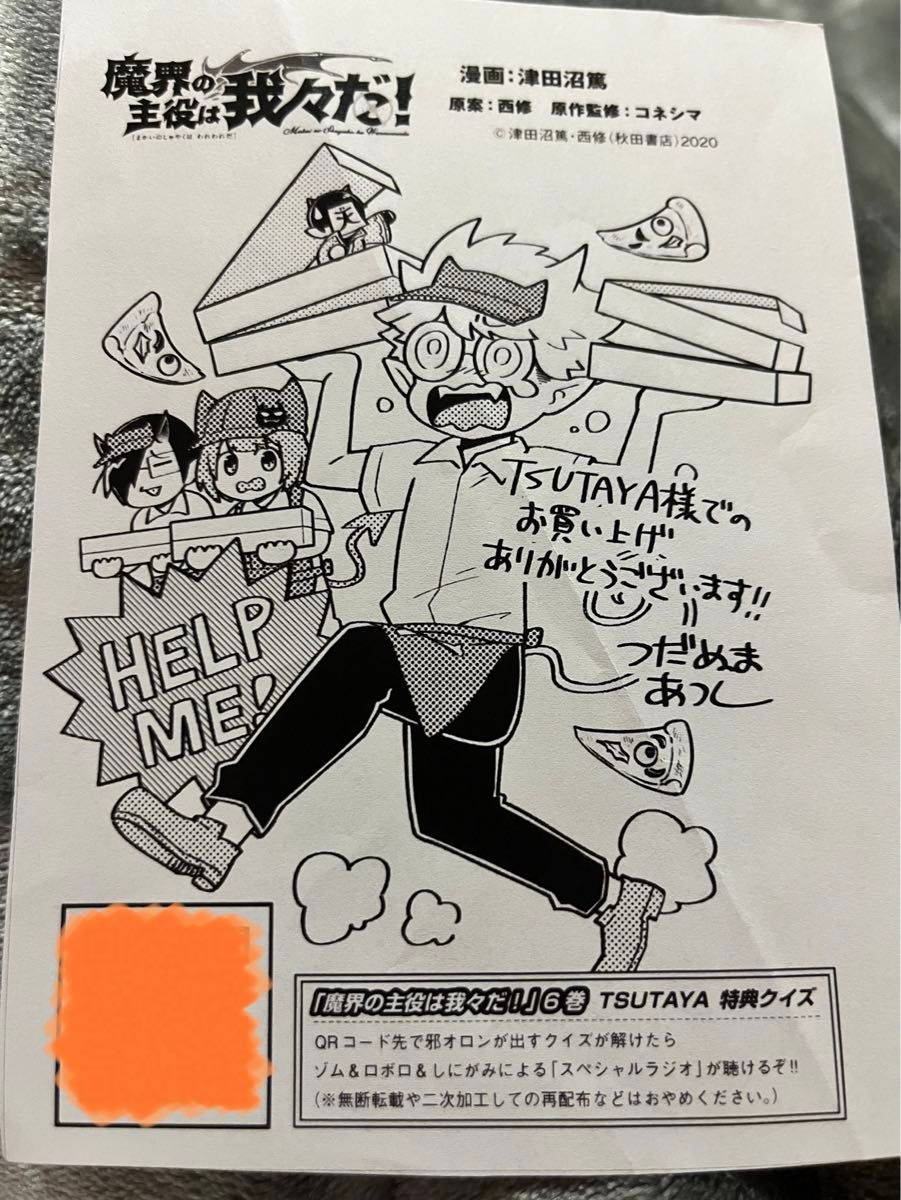 魔界の
主役は我々だ!
[まかいのしゅやくは われわれだ]
Makai no Shuyaku ha Wareware da
漫画:津田沼篤
原案:西修 原作監修:コネシマ
©津田沼篤・西修(秋田書店)2020
天
TSUTAYA様での
お買い上げ
ありがとうございます!!
つだぬま
あつし
HELP
ME!
「魔界の主役は我々だ!」6巻 TSUTAYA 特典クイズ
QRコード先で邪オロンが出すクイズが解けたら
ゾム&ロボロ&しにがみによる「スペシャルラジオ」が聴けるぞ!!
(※無断転載や二次加工しての再配布などはおやめください。)